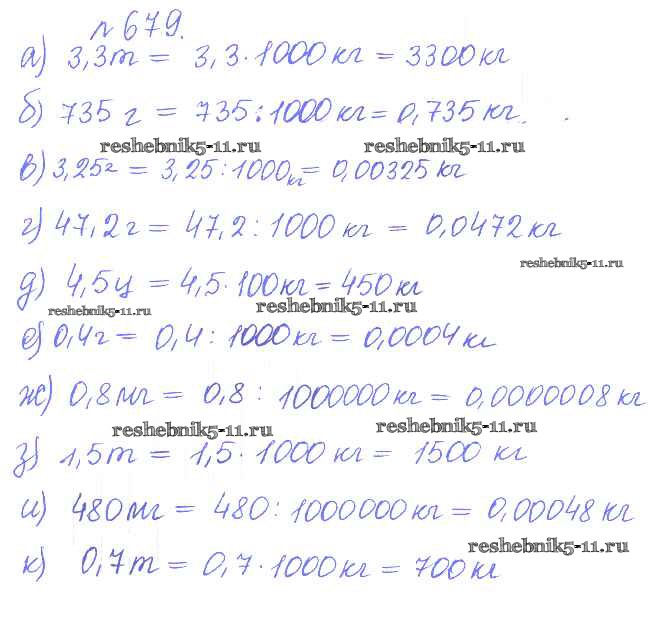 №679.
а) 3,3т = 3,3·1000кг = 3300кг
б) 735 г = 735:1000кг = 0,735 кг.
reshebnik5-11.ru reshebnik5-11.ru
в) 3,25г = 3,25:1000кг = 0,00325 кг
г) 47,2 г = 47,2:1000 кг = 0,0472 кг
reshebnik5-11.ru
д) 4,5ц = 4,5·100кг = 450 кг
reshebnik5-11.ru reshebnik5-11.ru
е) 0,4г = 0,4 : 1000 кг = 0,0004 кг
ж) 0,8 мг = 0,8 : 1000000 кг = 0,0000008 кг
reshebnik5-11.ru reshebnik5-11.ru
з) 1,5т = 1,5·1000 кг = 1500 кг
и) 480мг = 480:1000000 кг = 0,00048 кг
reshebnik5-11.ru
к) 0,7т = 0,7·1000кг = 700кг